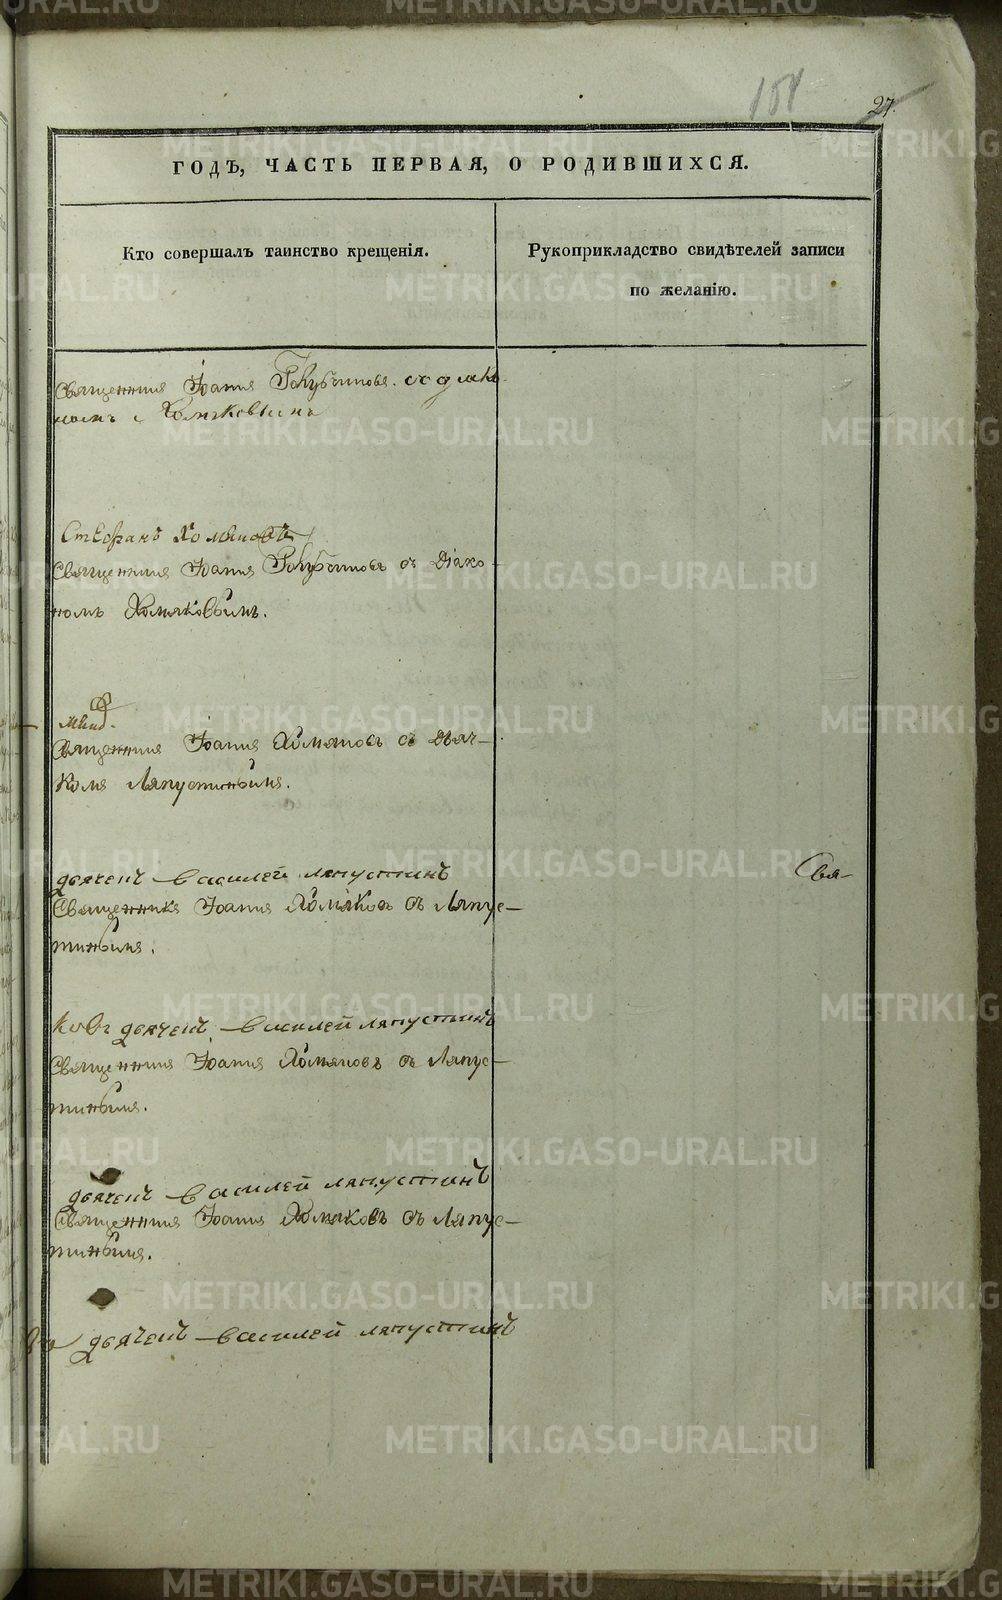 151
27.
ГОДЪ, ЧАСТЬ ПЕРВАЯ, О РОДИВШИХСЯ.
Кто совершалъ таинство крещенія.
Рукоприкладство свидѣтелей записи
по желанію.
Священникъ Іоаннъ Голубчиковъ со діако-
номъ Хомяковымъ
Стефанъ Хомяковъ
Священникъ Іоаннъ Голубчиковъ съ Діако-
номъ Хомяковымъ.
Священникъ Іоаннъ Хомяковъ съ Дьяч-
комъ Ляпустинымъ.
дьячекъ василей ляпустинъ
Свя-
Священникъ Іоаннъ Хомяковъ съ Ляпус-
тинымъ.
дьячекъ василей ляпустинъ
Священникъ Іоаннъ Хомяковъ съ Ляпус-
тинымъ.
дьячекъ василей ляпустинъ
Священникъ Іоаннъ Хомяковъ съ Ляпус-
тинымъ.
дьячекъ василей ляпустинъ
METRIKI.GASO-URAL.RU